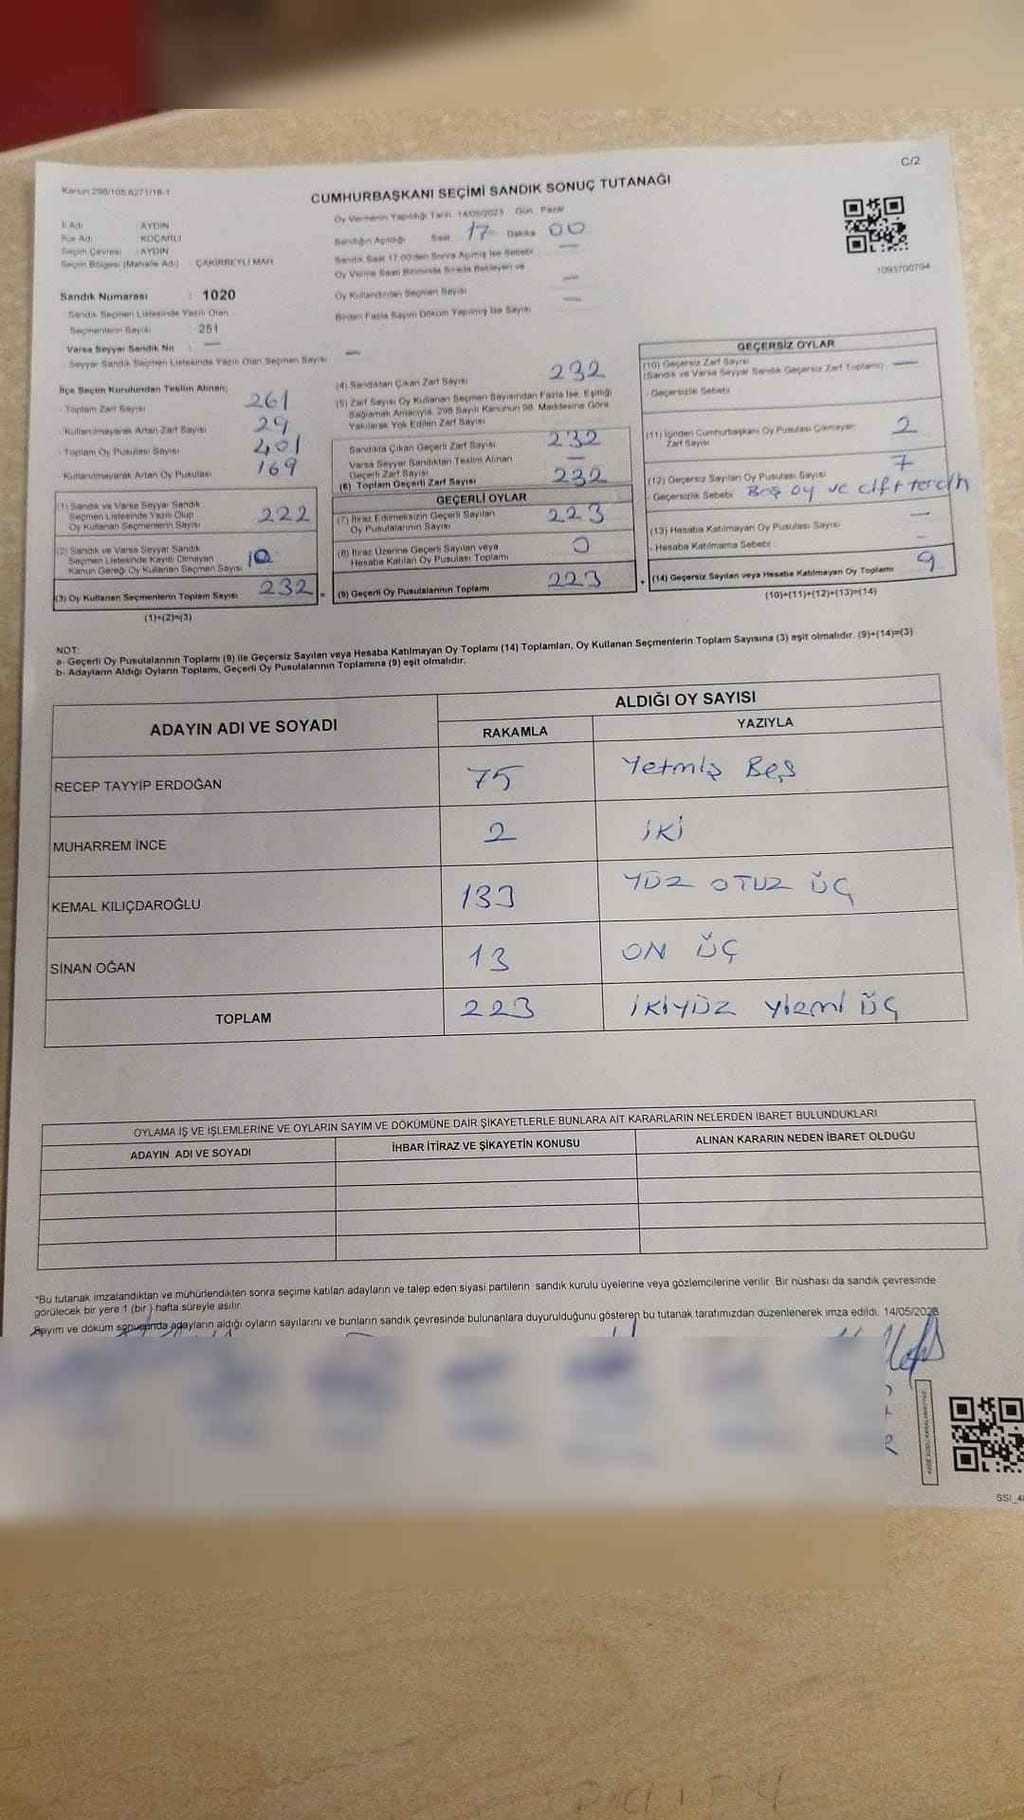 C/2
Kanun:298/105 6271/18-1
CUMHURBAŞKANI SEÇİMİ SANDIK SONUÇ TUTANAĞI
İl Adı : AYDIN
İlçe Adı : KOÇARLI
Seçim Çevresi : AYDIN
Seçim Bölgesi (Mahalle Adı) : ÇAKIRBEYLİ MAH
Sandık Numarası : 1020
Sandık Seçmen Listesinde Yazılı Olan
Seçmenlerin Sayısı : 251
Varsa Seyyar Sandık No : —
Seyyar Sandık Seçmen Listesinde Yazılı Olan Seçmen Sayısı —
Oy Vermenin Yapıldığı Tarih 14/05/2023 Gün Pazar
Sandığın Açıldığı Saat 17 Dakika 00
Sandık Saat 17:00'den Sonra Açılmış İse Sebebi —
Oy Verme Saati Bitiminde Sırada Bekleyen ve
Oy Kullandırılan Seçmen Sayısı —
Birden Fazla Sayım Döküm Yapılmış İse Sayısı —
1093700794
İlçe Seçim Kurulundan Teslim Alınan;
- Toplam Zarf Sayısı 261
- Kullanılmayarak Artan Zarf Sayısı 29
- Toplam Oy Pusulası Sayısı 401
- Kullanılmayarak Artan Oy Pusulası 169
(1) Sandık ve Varsa Seyyar Sandık
Seçmen Listesinde Yazılı Olup
Oy Kullanan Seçmenlerin Sayısı 222
(2) Sandık ve Varsa Seyyar Sandık
Seçmen Listesinde Kayıtlı Olmayan
Kanun Gereği Oy Kullanan Seçmen Sayısı 10
(3) Oy Kullanan Seçmenlerin Toplam Sayısı 232
(1)+(2)=(3)
(4) Sandıktan Çıkan Zarf Sayısı 232
(5) Zarf Sayısı Oy Kullanan Seçmen Sayısından Fazla İse, Eşitliği
Sağlamak Amacıyla, 298 Sayılı Kanunun 98. Maddesine Göre
Yakılarak Yok Edilen Zarf Sayısı
Sandıkta Çıkan Geçerli Zarf Sayısı 232
Varsa Seyyar Sandıktan Teslim Alınan
Geçerli Zarf Sayısı —
(6) Toplam Geçerli Zarf Sayısı 232
GEÇERLİ OYLAR
(7) İtiraz Edilmeksizin Geçerli Sayılan
Oy Pusulalarının Sayısı 223
(8) İtiraz Üzerine Geçerli Sayılan veya
Hesaba Katılan Oy Pusulası Toplamı 0
(9) Geçerli Oy Pusulalarının Toplamı 223
GEÇERSİZ OYLAR
(10) Geçersiz Zarf Sayısı
(Sandık ve Varsa Seyyar Sandık Geçersiz Zarf Toplamı) —
- Geçersizlik Sebebi
(11) İçinden Cumhurbaşkanı Oy Pusulası Çıkmayan
Zarf Sayısı 2
(12) Geçersiz Sayılan Oy Pusulası Sayısı 7
- Geçersizlik Sebebi Boş oy ve çift tercih
(13) Hesaba Katılmayan Oy Pusulası Sayısı —
- Hesaba Katılmama Sebebi —
(14) Geçersiz Sayılan veya Hesaba Katılmayan Oy Toplamı 9
(10)+(11)+(12)+(13)=(14)
NOT:
a- Geçerli Oy Pusulalarının Toplamı (9) ile Geçersiz Sayılan veya Hesaba Katılmayan Oy Toplamı (14) Toplamları, Oy Kullanan Seçmenlerin Toplam Sayısına (3) eşit olmalıdır. (9)+(14)=(3)
b- Adayların Aldığı Oyların Toplamı, Geçerli Oy Pusulalarının Toplamına (9) eşit olmalıdır.
ADAYIN ADI VE SOYADI ALDIĞI OY SAYISI
RAKAMLA YAZIYLA
RECEP TAYYİP ERDOĞAN 75 Yetmiş Beş
MUHARREM İNCE 2 İKİ
KEMAL KILIÇDAROĞLU 133 YÜZ OTUZ ÜÇ
SİNAN OĞAN 13 ON ÜÇ
TOPLAM 223 İKİYÜZ yirmi ÜÇ
OYLAMA İŞ VE İŞLEMLERİNE VE OYLARIN SAYIM VE DÖKÜMÜNE DAİR ŞİKAYETLERLE BUNLARA AİT KARARLARIN NELERDEN İBARET BULUNDUKLARI
ADAYIN ADI VE SOYADI İHBAR İTİRAZ VE ŞİKAYETİN KONUSU ALINAN KARARIN NEDEN İBARET OLDUĞU
*Bu tutanak imzalandıktan ve mühürlendikten sonra seçime katılan adayların ve talep eden siyasi partilerin sandık kurulu üyelerine veya gözlemcilerine verilir. Bir nüshası da sandık çevresinde
görülecek bir yere 1 (bir) hafta süreyle asılır.
Sayım ve döküm sonucunda adayların aldığı oyların sayılarını ve bunların sandık çevresinde bulunanlara duyurulduğunu gösteren bu tutanak tarafımızdan düzenlenerek imza edildi. 14/05/2023